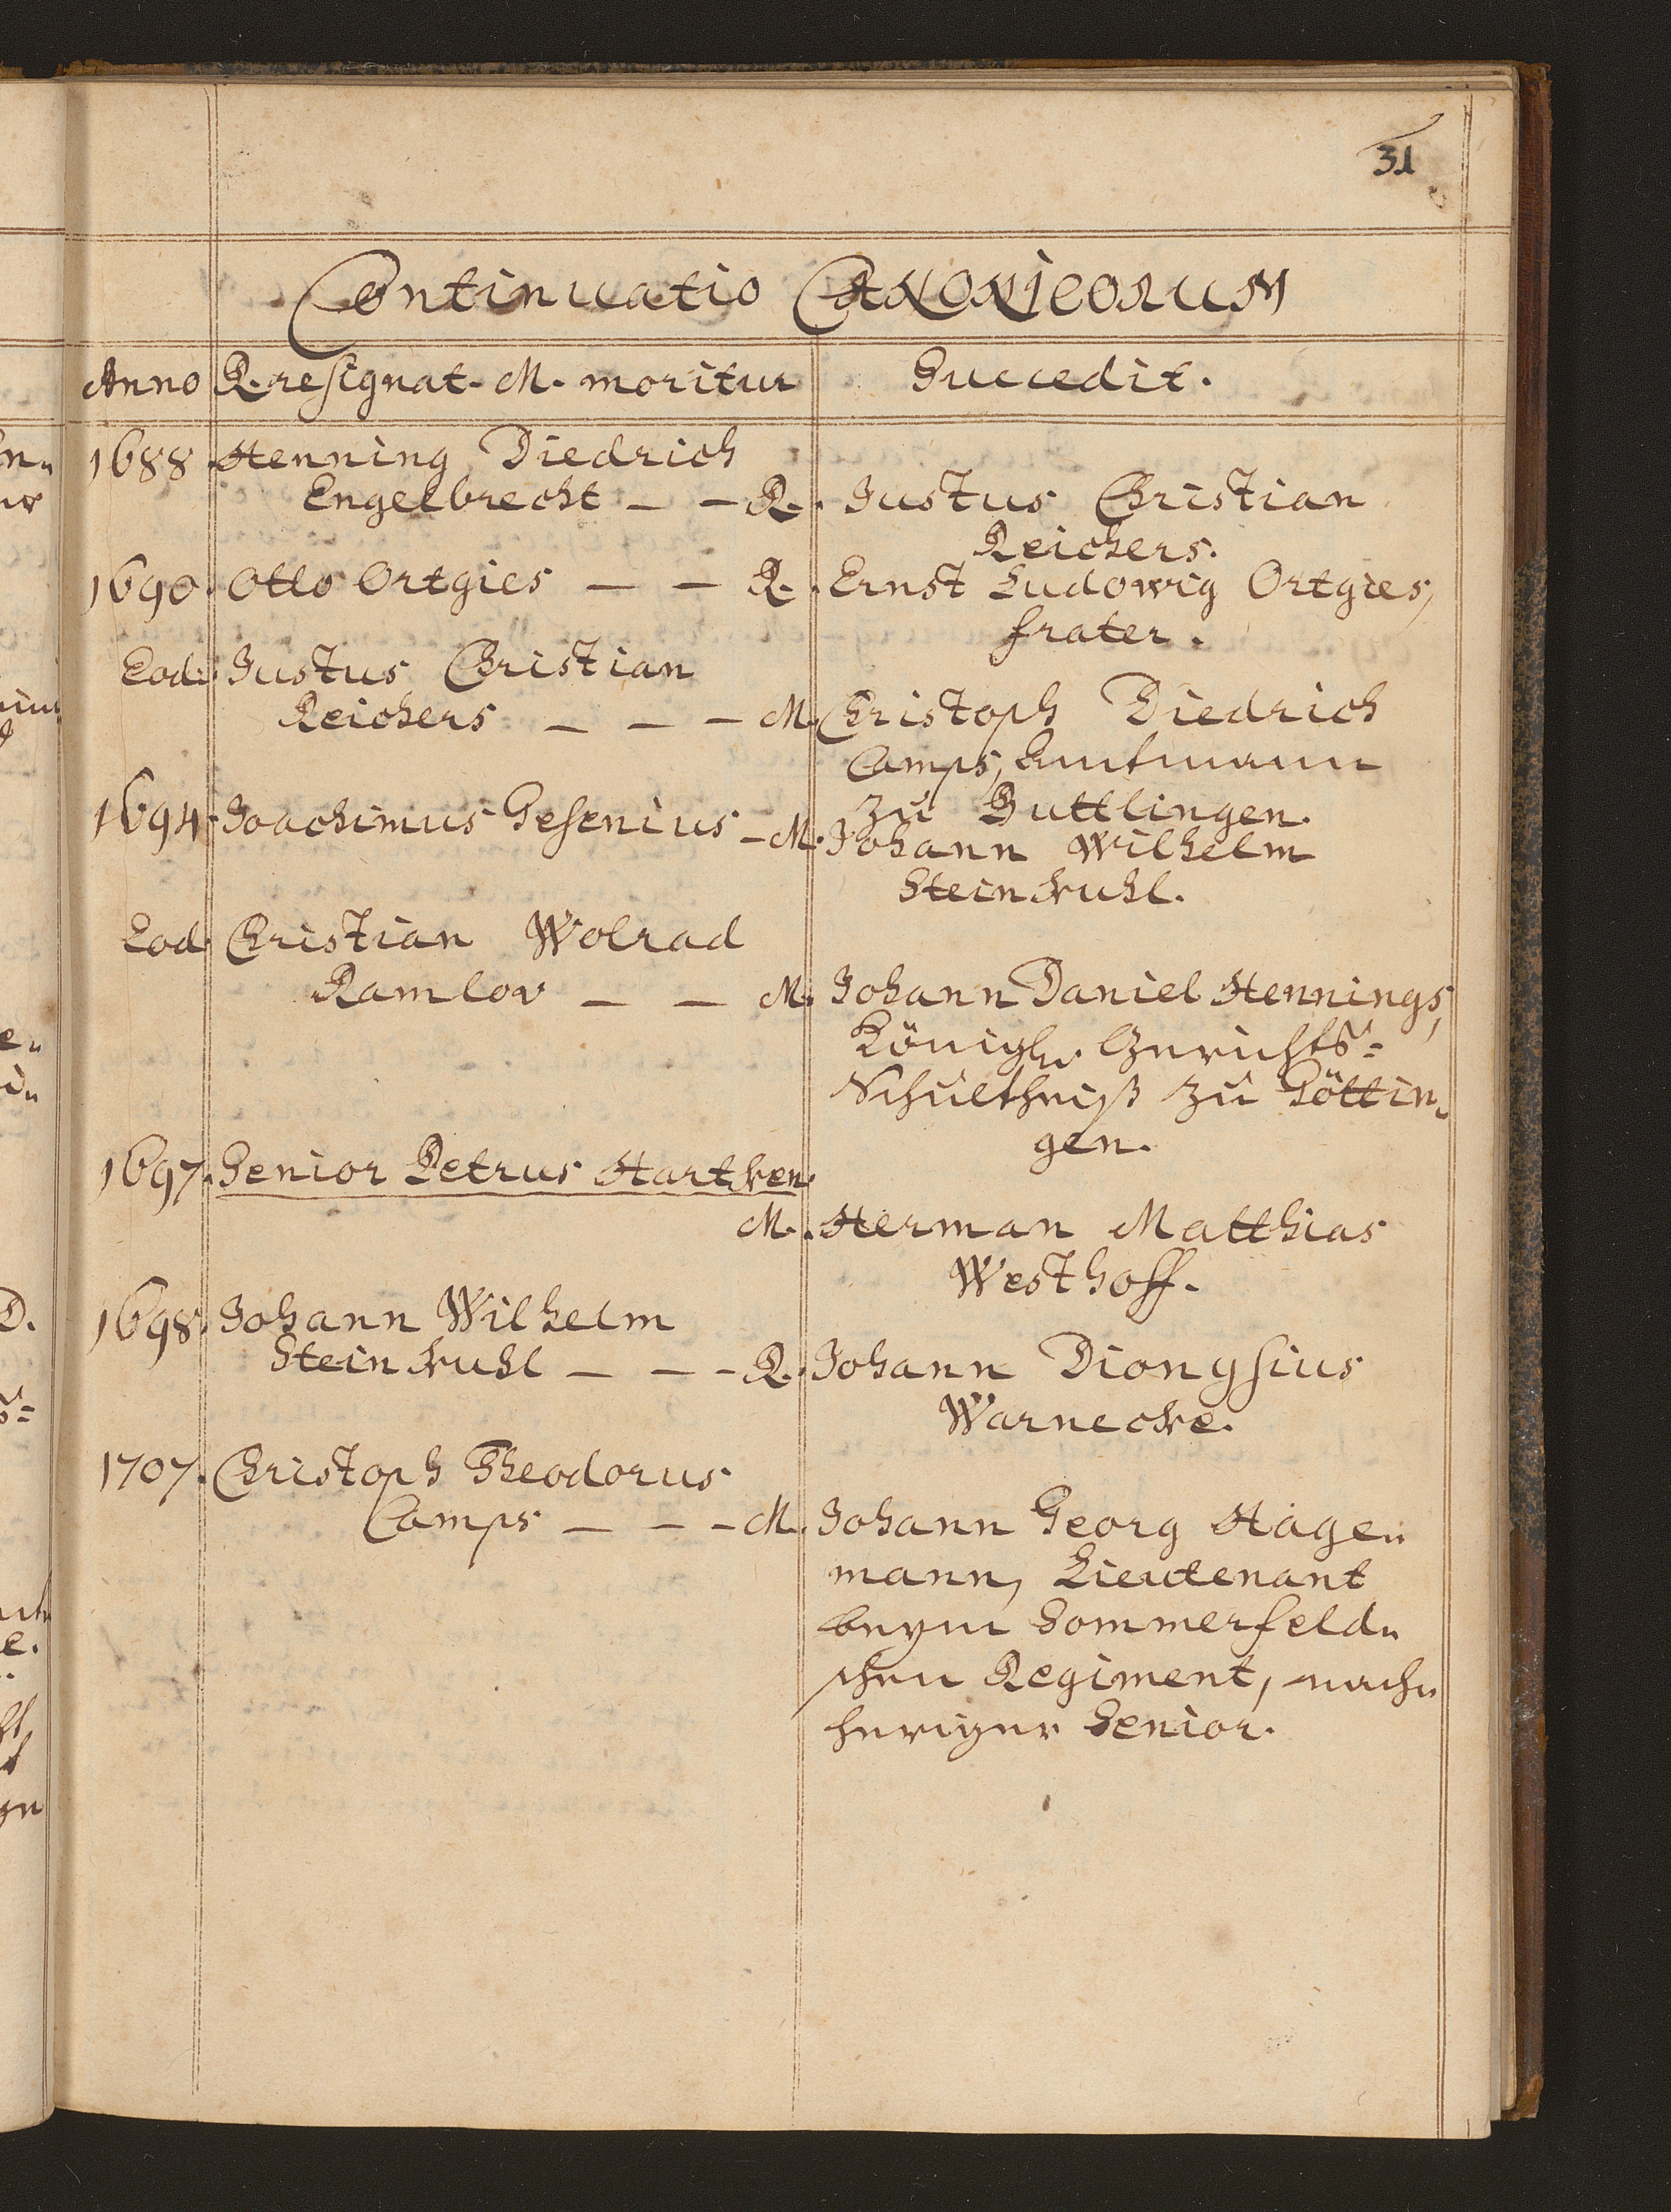 31
Continuatio CANONICORUM
Anno R. resignat. M. moritur Succedit.
1688. Henning Diedrich
Engelbrecht _ _ R. Justus Christian
Reichers.
1690. Otto Ortgies _ _ R. Ernst Ludowig Ortgies,
frater.
Eod. Justus Christian
Reichers _ _ _ M. Christoph Diedrich
Camps, Amtmann
zu Suttlingen.
1694. Joachimus Gesenius _ M. Johann Wilhelm
Steinkuhl.
Eod. Christian Wolrad
Ramlov _ _ M. Johann Daniel Hennings,
Königl. Gerichts=
Schultheiß zu Göttin„
gen.
1697. Senior Petrus Hartken.
M. Herman Matthias
Westhoff.
1698. Johann Wilhelm
Steinkuhl _ _ _ R. Johann Dionysius
Warnecke.
1707. Christoph Theodorus
Camps _ _ _ M. Johann Georg Hage„
mann, Lieutenant
beym Sommerfeld„
schen Regiment, nach„
heriger Senior.